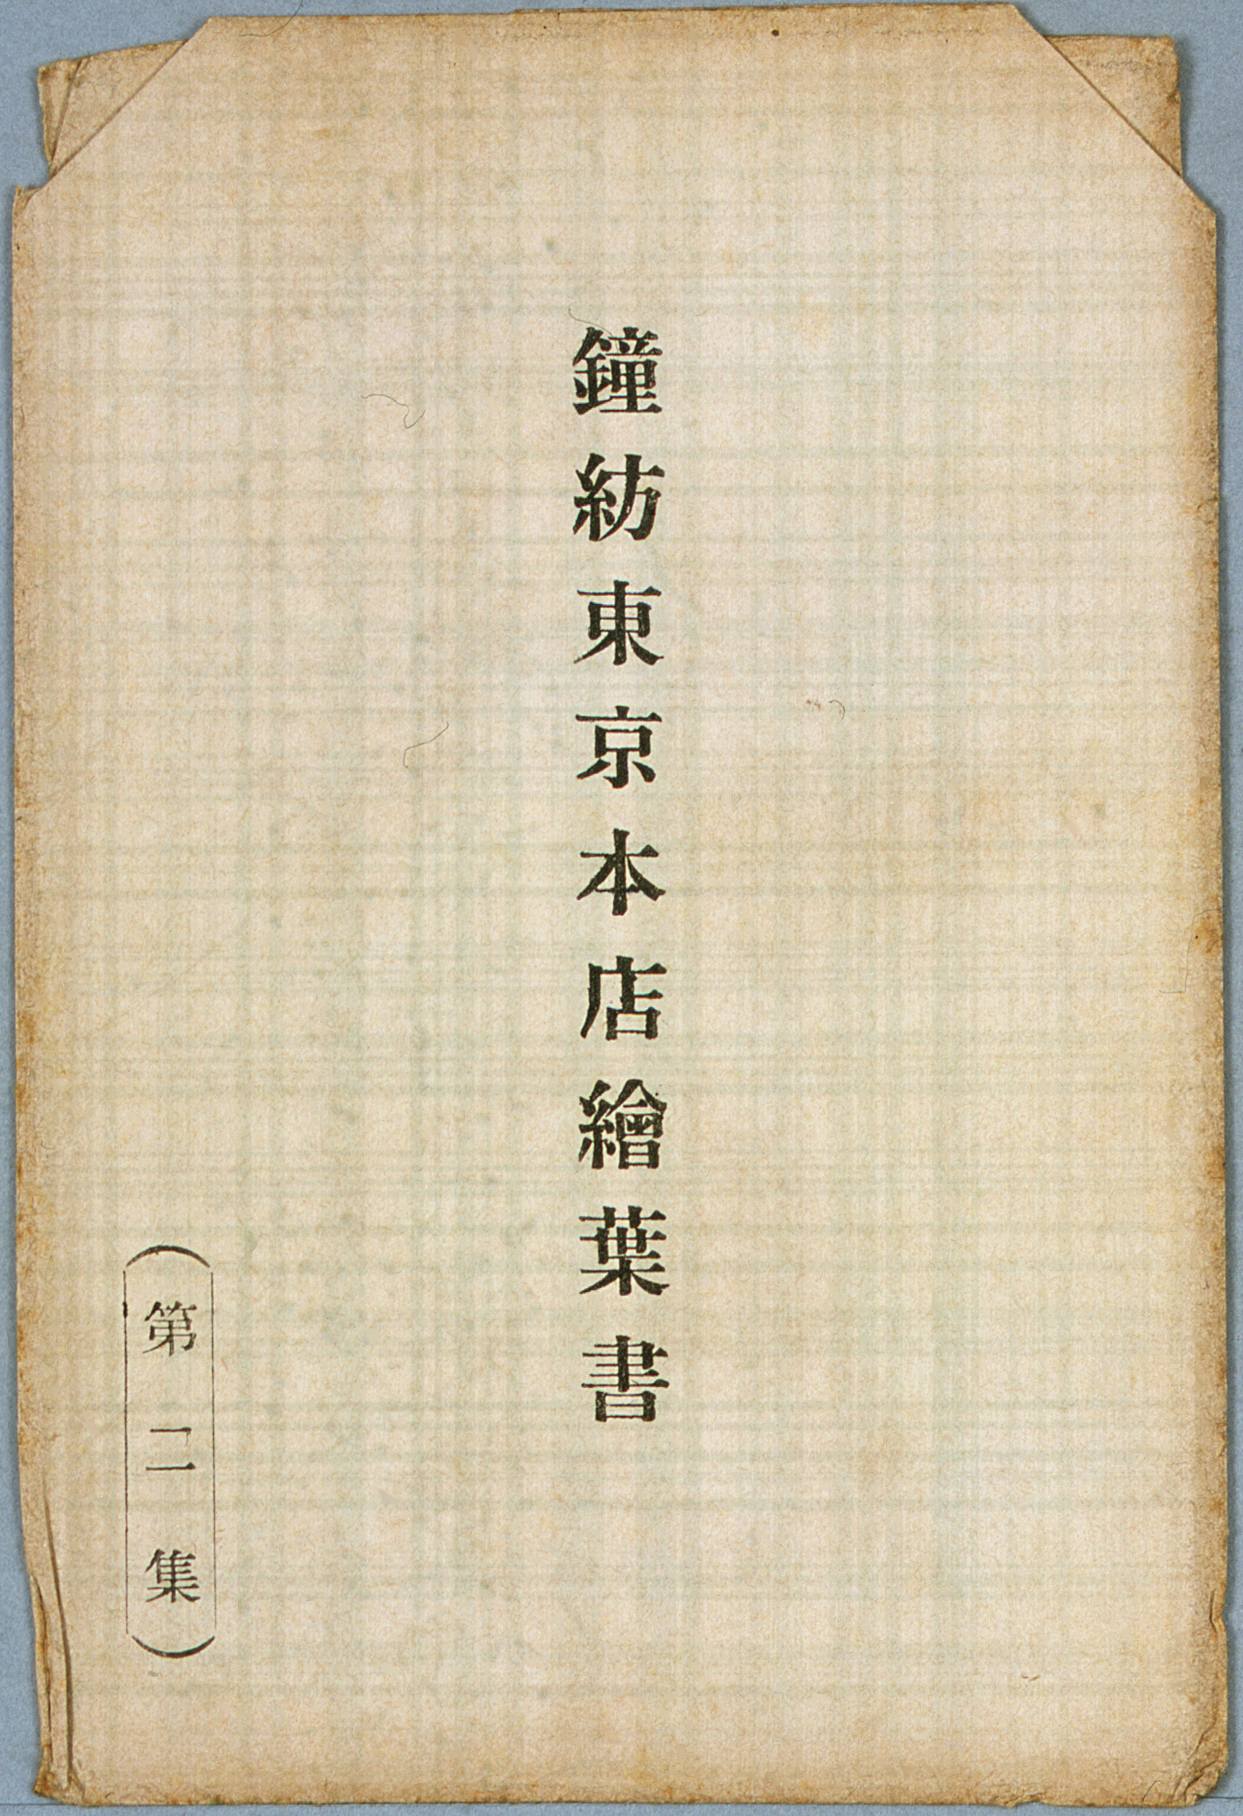 鐘紡東京本店繪葉書
(第二集)